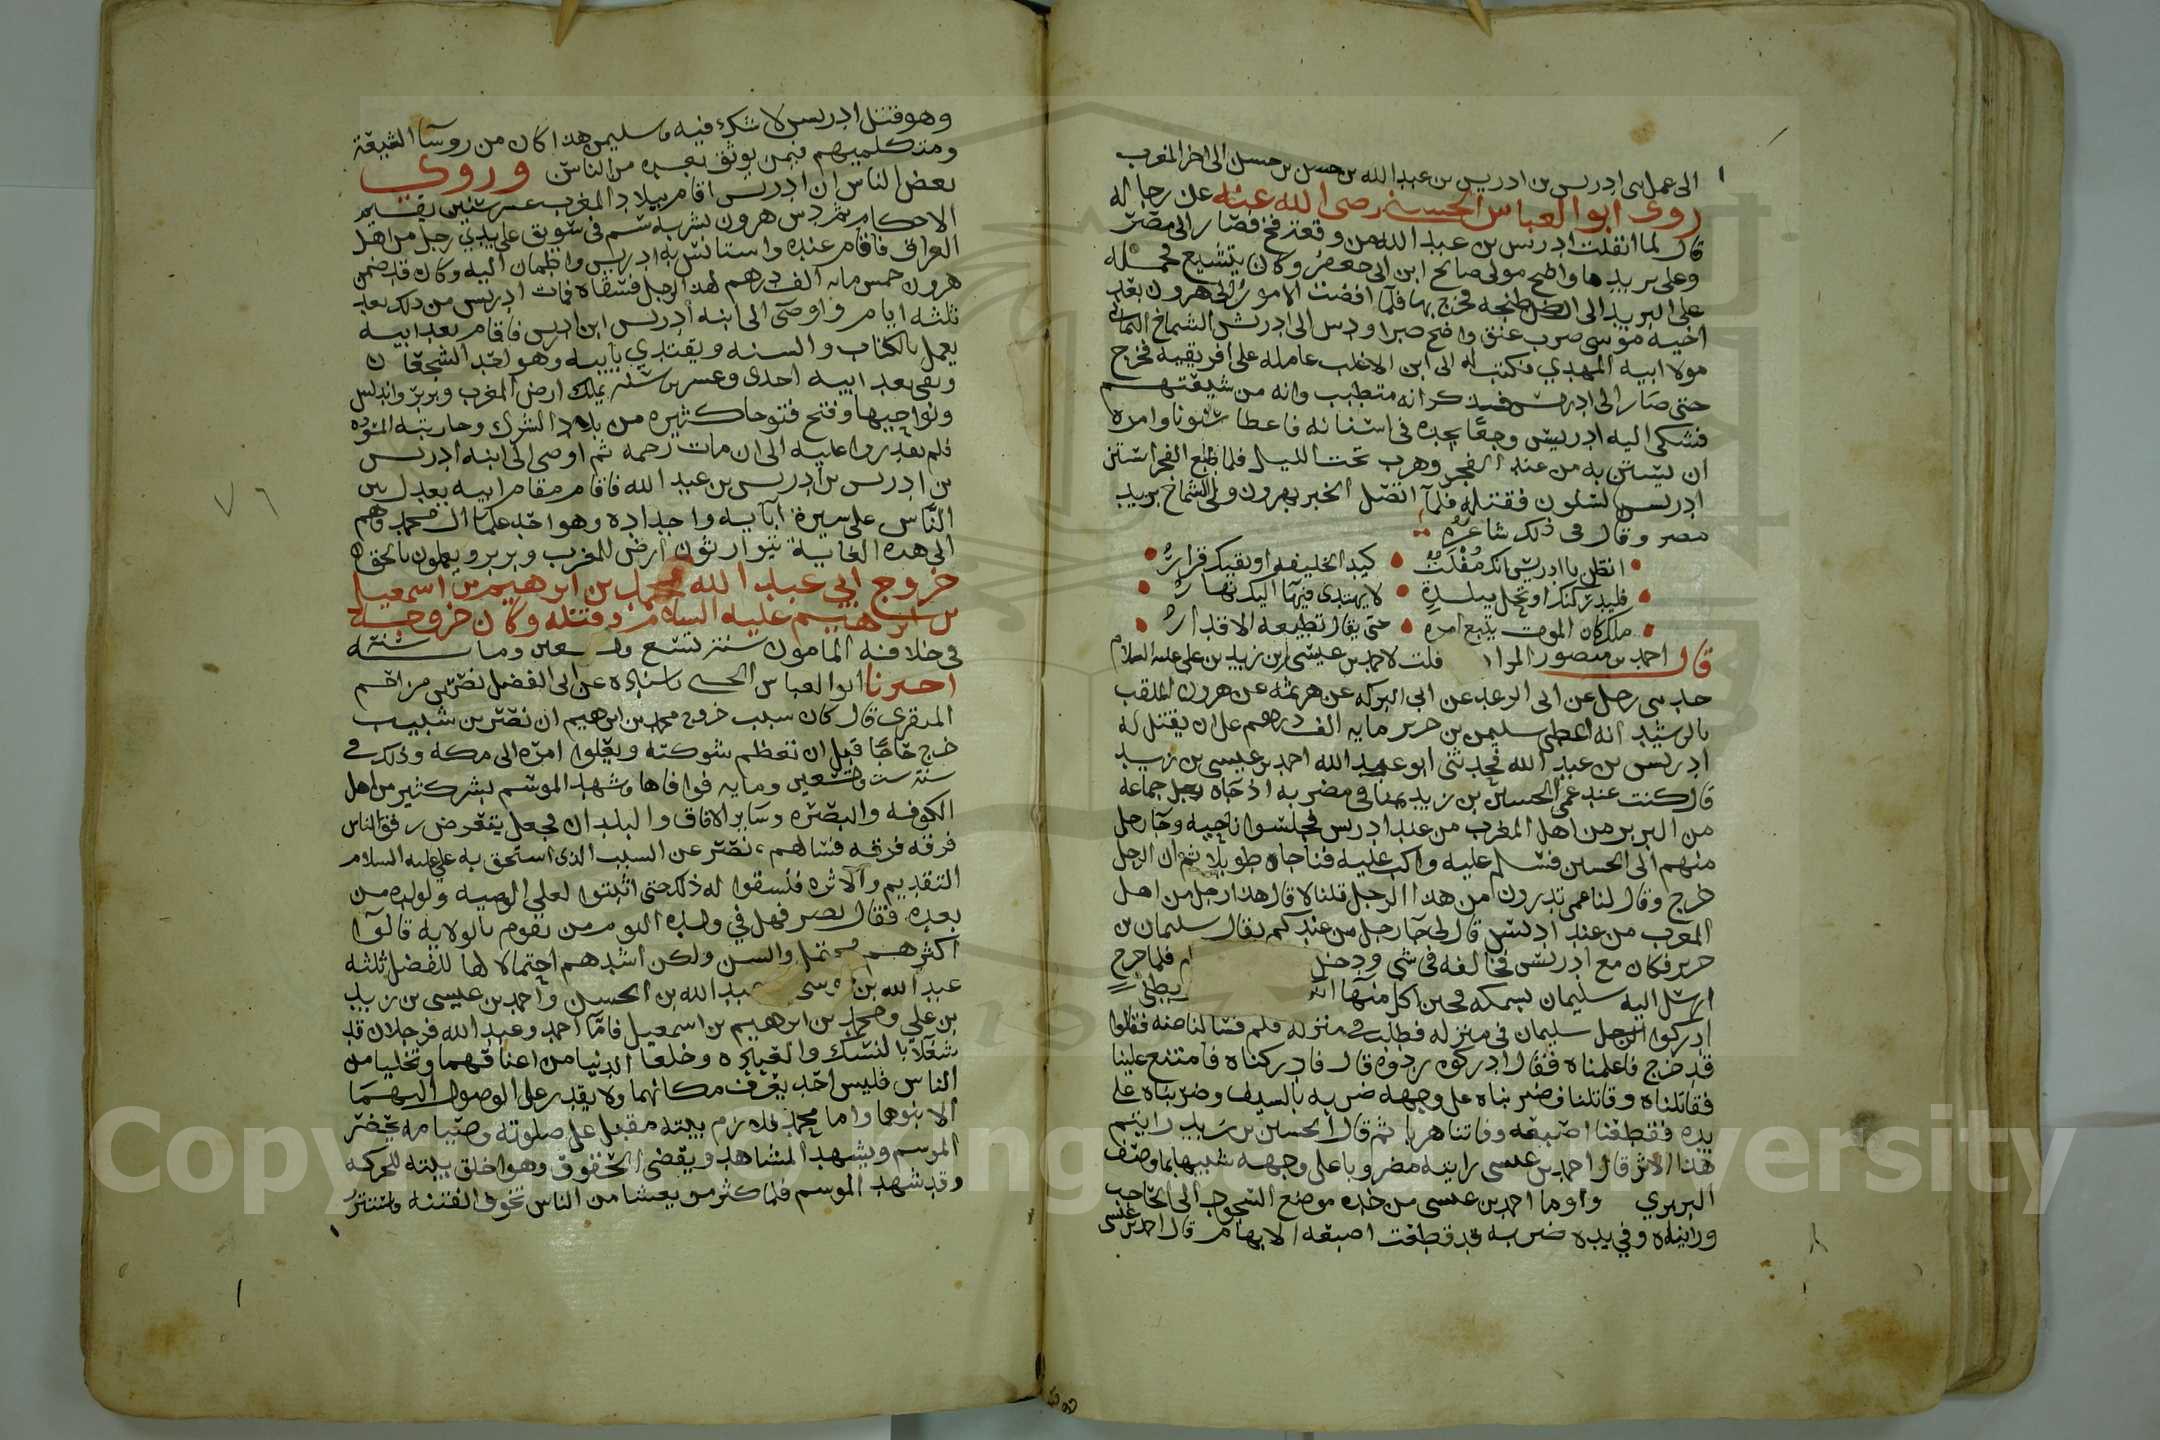 الى عمل بنى ادريس بن ادريس بن عبد الله بن حسن بن حسن الى اخر المغرب
روى ابو العباس الحسني رضى الله عنه عن رجاله
قال لما انفلت ادريس بن عبد الله من وقعة فخ فصار الى مصر
وعلى بريدها واضح مولى صالح ابن ابى جعفر وكان يتشيع فحمله
على البريد الى ارض طنجه فخرج بها فلما افضت الامور الى هرون بعد
اخيه موسى ضرب عنق واضح صبرا ودس الى ادريس الشماخ اليماني
مولا ابيه المهدي وكتب له الى ابن الاغلب عامله على افريقيه فخرج
حتى صار الى ادريس فذكر انه متطبب وانه من شيعتهم
فشكى اليه ادريس وجعا يجده فى اسنانه فاعطاه سنونا وامره
ان يستن به من عند الفجر وهرب تحت الليل فلما طلع الفجر استن
ادريس بالسنون فقتله فلما اتصل الخبر بهرون ولى الشماخ بريد
مصر وقال فى ذلك شاعرهم
اتظن يا ادريس انك مفلت كيد الخليفه او يقيك فرار
فليدركنك او تحل ببلدة لا يهتدى فيها اليك نهار
ملك كان الموت يتبع امره حتى يقال تطيعه الاقدار
قال احمد بن منصور المرادى قلت لاحمد بن عيسى بن زيد بن على عليه السلام
حدثنى رجل عن ابى الرعد عن ابى البركه عن هرثمه عن هرون الملقب
بالرشيد انه اعطى سليمن بن جرير مايه الف درهم على ان يقتل له
ادريس بن عبد الله فحدثنى ابو عبد الله احمد بن عيسى بن زيد
قال كنت عند عمى الحسين بن زيد بمنا فى مضربه اذ جاه رجل جماعه
من البربر من اهل المغرب من عند ادريس فجلسوا ناحيه وجا رجل
منهم الى الحسين فسلم عليه واكب عليه فناجاه طويلا ثم ان الرجل
خرج وقال لنا عمى تدرون من هذا الرجل قلنا لا قال هذا رجل من اهل
المغرب من عند ادريس قال لى جا رجل من عندكم يقال سليمان بن
جرير فكان مع ادريس فخالفه فى شى ودخل فلما خرج
ارسل اليه سليمان بسمكه فحين اكل منها بطني
ادركوا الرجل سليمان فى منزله فطلب فى منزله فلم فسالنا عنه فقالوا
قد خرج فاعلمناه فقال ادركوه ردوه قال فادركناه فامتنع علينا
فقاتلناه وقاتلنا فضربناه على وجهه ضربه بالسيف وضربناه على
يده فقطعنا اصبعه وفاتنا هربا ثم قال الحسين بن زيد رايتم
هذا الاثر قال احمد بن عيسى رايته مضروبا على وجهه شبيها بما وصف
البربري واوما احمد بن عيسى من خده موضع السجود الى الحاجب
ورايناه وفي يده ضربه قد قطعت اصبعه الابهام قال احمد بن عيسى
وهو قتل ادريس لا شك فيه وسليمن هذا كان من روسآ الشيعة
ومتكلميهم فيمن يوثق بغيره من الناس وروي
بعض الناس ان ادريس اقام ببلاد المغرب عشر سنين يقيم
الاحكام ثم دس هرون بشربه سم فى سويق على يدي رجل من اهل
العراق فاقام عنده واستانس به ادريس واطمان اليه وكان قد ضمن
هرون خمس مايه الف درهم لهذا الرجل فسقاه فمات ادريس من ذلك بعد
ثلثه ايام واوصى الى ابنه ادريس ابن ادريس فاقام بعد ابيه
يعمل بالكتاب والسنه ويقتدي بابيه وهو احد الشجعان
وبقى بعد ابيه احدى وعشرين سنه يملك ارض المغرب وبربر واندلس
ونواحيها وفتح فتوحا كثيره من بلاد الشرك وحاربته المسوده
فلم يقدروا عليه الى ان مات رحمه ثم اوصى الى ابنه ادريس
بن ادريس بن ادريس بن عبد الله فاقام مقام ابيه يعدل بين
الناس على سيرة ابايه واجداده وهو احد علما ال محمد وهم
الى هذه الغاية يتوارثون ارض المغرب وبربر ويعملون بالحق
خروج ابي عبد الله محمد بن ابرهيم بن اسمعيل
بن ابرهيم عليه السلام ومقتله وكان خروجه
فى خلافه المامون سنة تسع وتسعين ومايه سنه
اخبرنا ابو العباس الحسنى باسناده عن ابى الفضل نصر بن مزاحم
المنقرى قال كان سبب خروج محمد بن ابرهيم ان نصر بن شبيب
خرج حاجا قبل ان تعظم شوكته ويعلوا امره الى مكه وذلك في
سنة ست وتسعين ومايه فوافاها وشهد الموسم بشر كثير من اهل
الكوفه والبصره وساير الافاق والبلدان فجعل يتعرض رفق الناس
فرقه فرقه فسالهم نصر عن السبب الذى استحق به على عليه السلام
التقديم والاثره فنسقوا له ذلك حتى اثبتوا لعلى الوصيه ولولده من
بعده فقال نصر فهل في ولده اليوم من يقوم بالولايه قالوا
اكثرهم محتمل والسن ولكن اشدهم احتمالا لها للفضل ثلثه
عبد الله بن موسى عبد الله بن الحسن واحمد بن عيسى بن زيد
بن علي ومحمد بن ابرهيم بن اسمعيل فاما احمد وعبد الله فرجلان قد
شغلا بالنسك والعباده وخلعا الدنيا من اعناقهما وتخليا من
الناس فليس احد يعرف مكانهما ولا يقدر على الوصول اليهما
الا بنوهما واما محمد فلازم بيته مقبل على صلوته وصيامه يحضر
الموسم ويشهد المشاهد ويقضى الحقوق وهو اخلق بيته للحركه
وقد شهد الموسم فلما كثر من يغشا من الناس تخوف الفتنه واستتر
Copyright © King Saud University